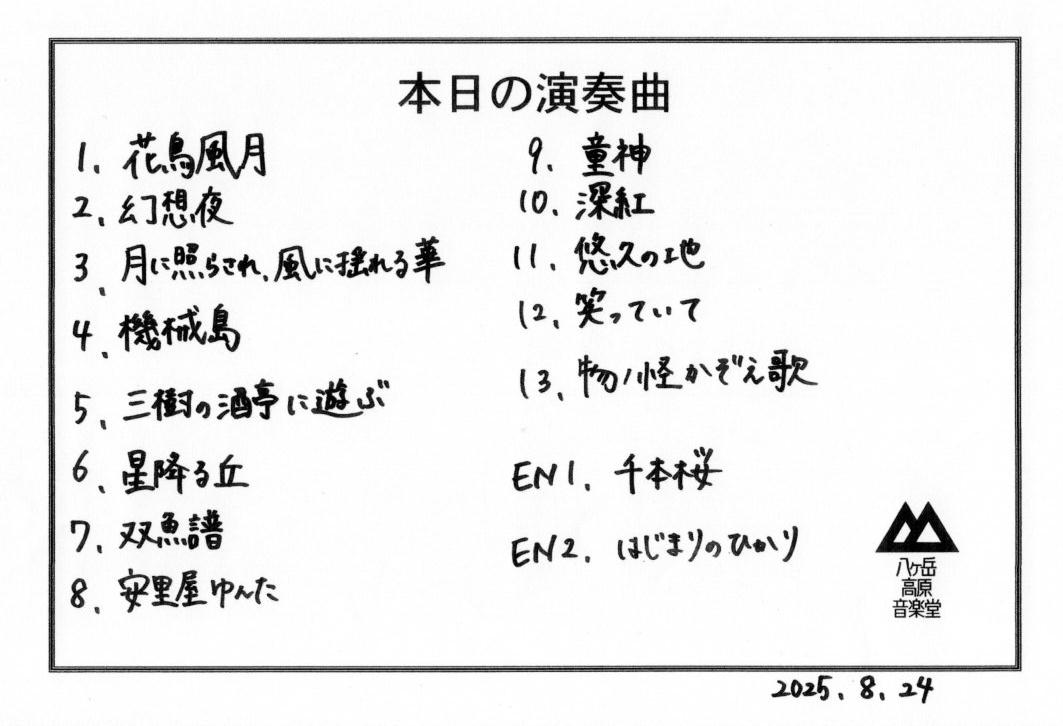 本日の演奏曲
1. 花鳥風月
2. 幻想夜
3. 月に照らされ、風に揺れる華
4. 機械島
5. 三樹の酒亭に遊ぶ
6. 星降る丘
7. 双魚譜
8. 安里屋ゆんた
9. 童神
10. 深紅
11. 悠久の地
12. 笑っていて
13. 物ノ怪かぞえ歌
EN1. 千本桜
EN2. はじまりのひかり
八ヶ岳
高原
音楽堂
2025. 8. 24